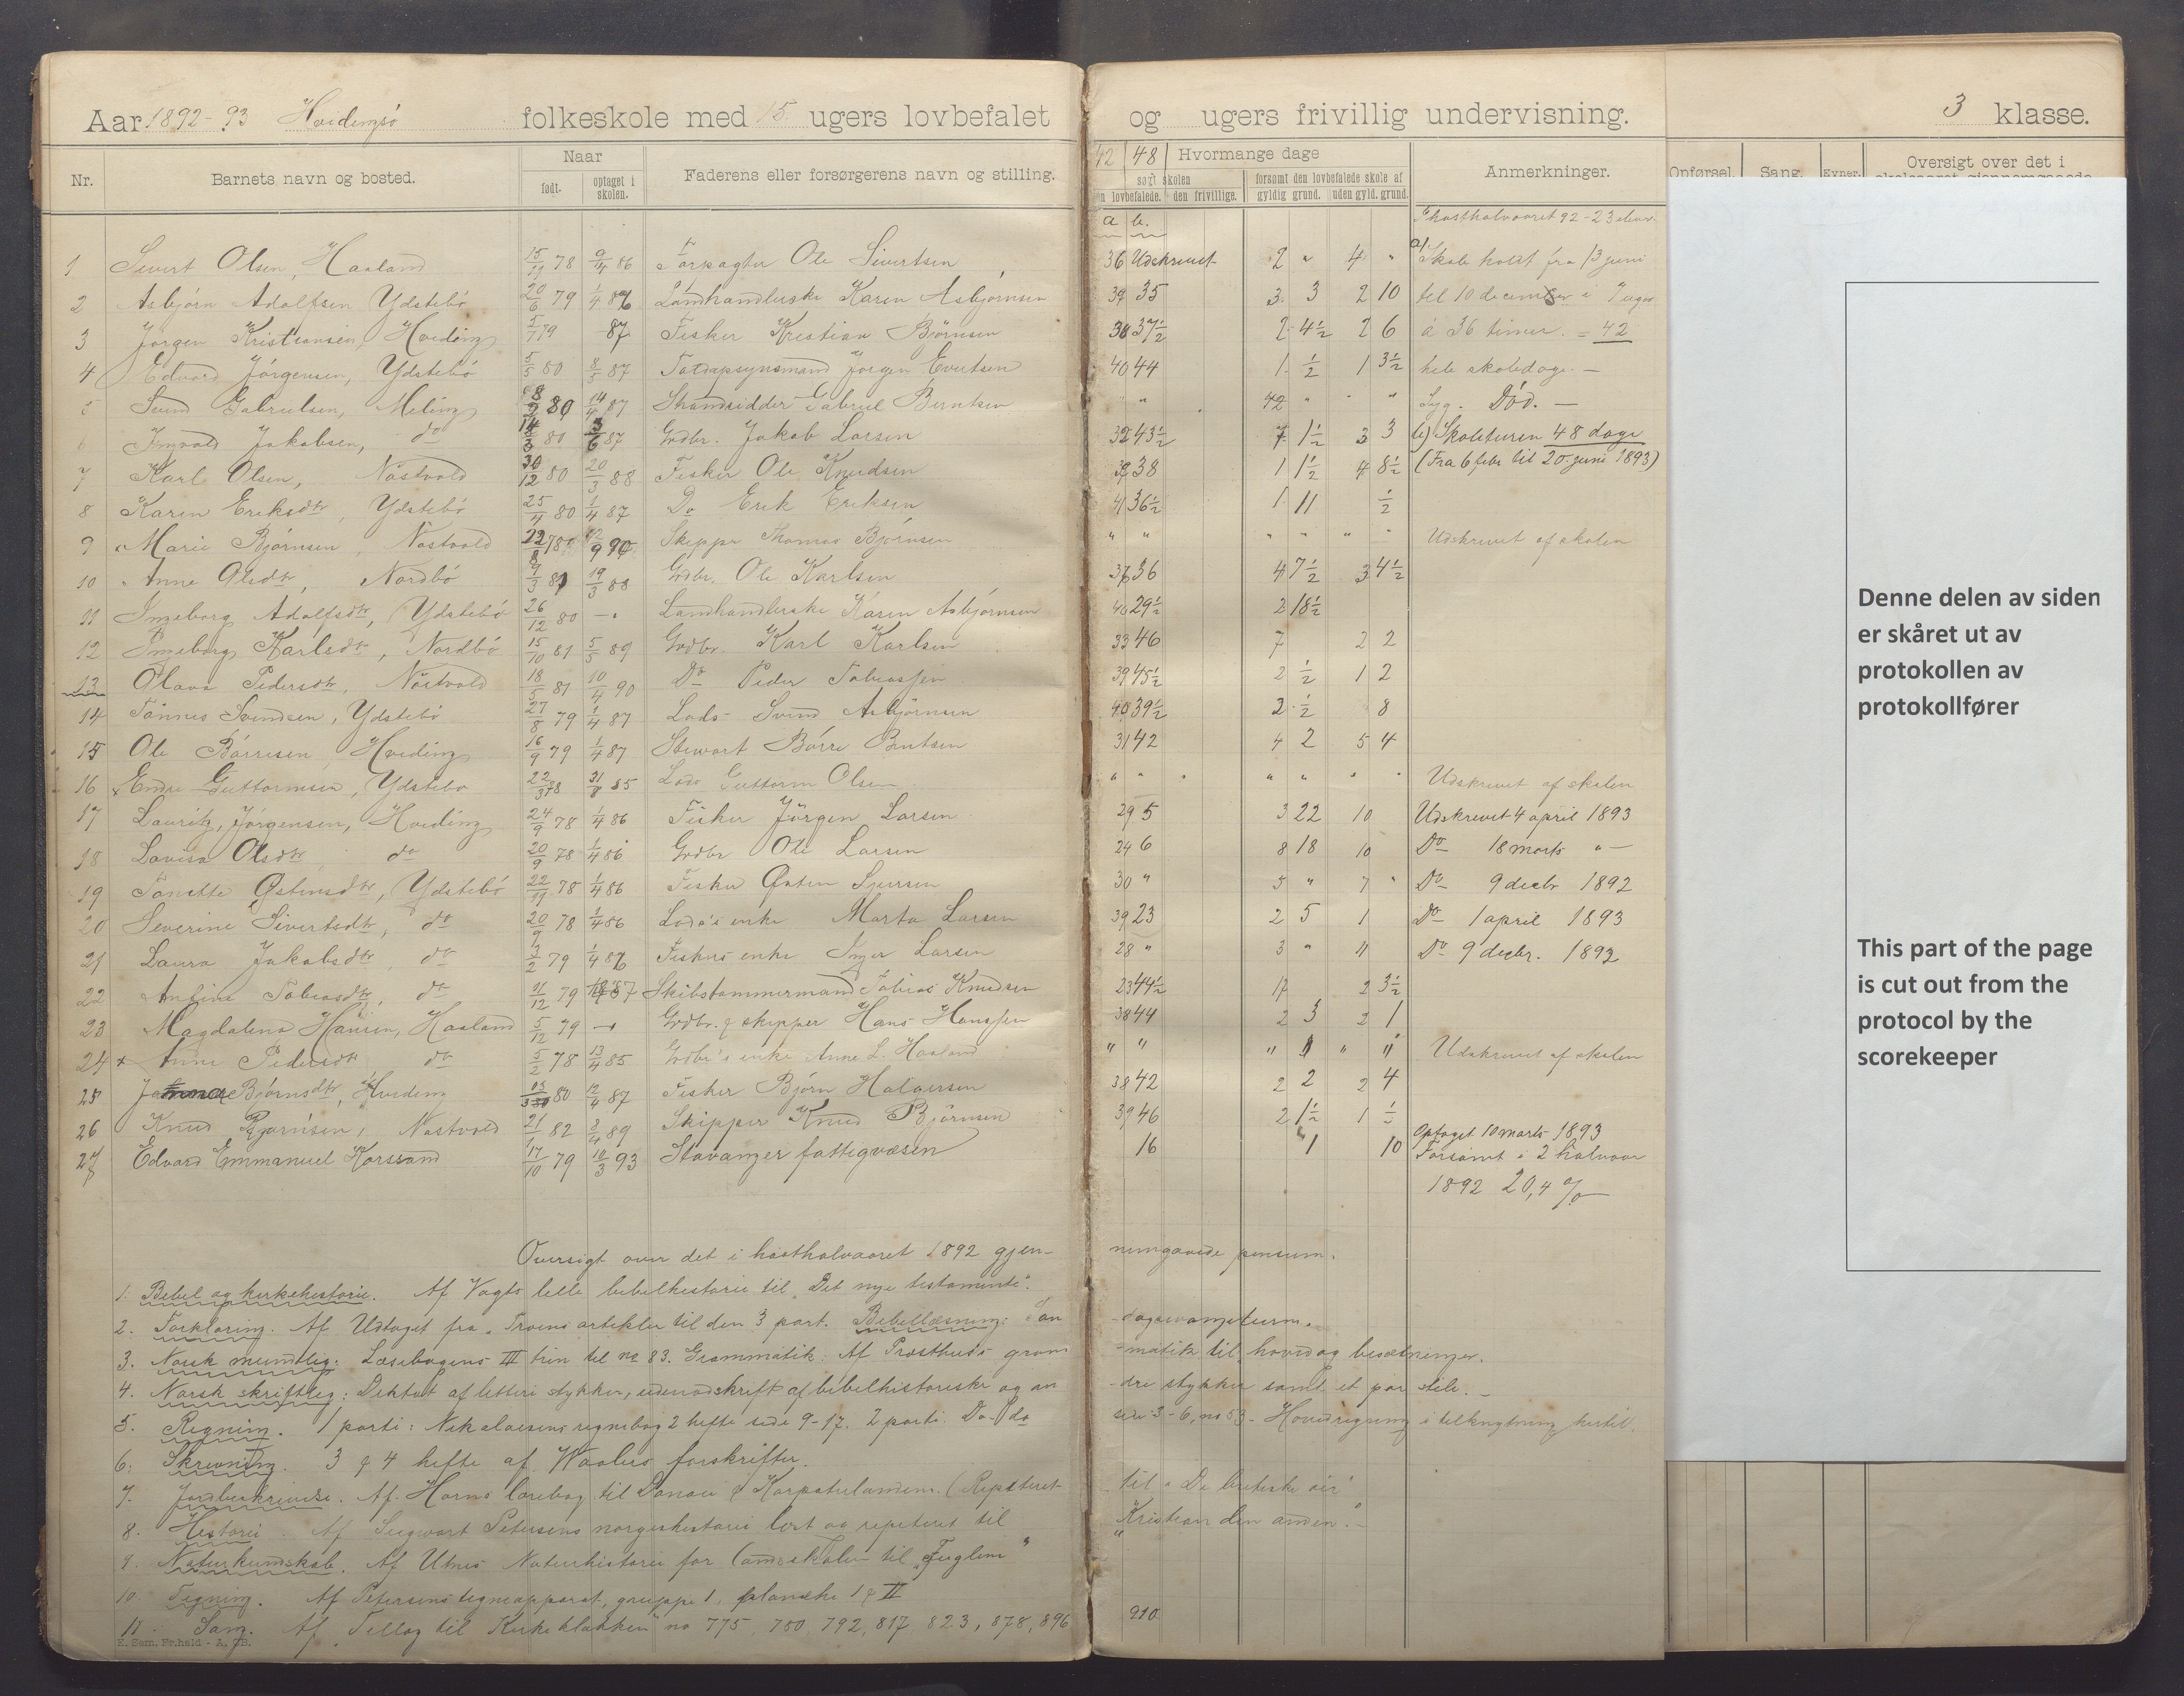 Aar 1892-93 Hvidingsö folkeskole med 15 ugers lovbefalet og ugers frivillig undervisning. 3 klasse.
Nr. Barnets navn og bosted. Naar født. optaget i skolen. Faderens eller forsørgerens navn og stilling. 42 48 Hvormange dage søgt skolen den lovbefalede. den frivillige. forsømt den lovbefalede skole af gyldig grund. uden gyld. grund. Anmerkninger. Opførsel. Sang. Oversigt over det i
a b. I høsthalvaaret 92 - 23 elever.
1 Sivert Olsen, Haaland 15/11 78 9/4 86 Forpagter Ole Sivertsen 36 Udskrevet 2 " 4 " a) Skole holdt fra 13 juni
2 Asbjörn Adolfsen Ydstebö 20/6 79 1/4 86 Landhandlerske Karen Asbjörnsen 39 35 3 3 2 10 til 10 december i 7 uger
3 Jörgen Kristiansen, Hviding 5/7 79 - 87 Fisker Kristian Björnsen 38 37½ 2 4½ 2 6 á 36 timer. = 42
4 Edvard Jörgensen, Ydstebö 5/5 80 8/5 87 Jörgen Evertsen 40 44 1 ½ 1 3½ hele skoledage. —
5 Svend Gabrielsen, Meling 80 14/4 87 Strandsidder Gabriel Berntsen " " 42 " " " Syg. Död. —
6 Ingvald Jakobsen, do 14/3 80 3/6 87 Grdbr. Jakob Larsen 32 43½ 7 1½ 3 3 b) Skoleturen 48 dage
7 Karl Olsen, Nöstvold 30/12 80 20/3 88 Fisker Ole Knudsen 38 38 1 1½ 4 8½ (Fra 6 febr til 20 juni 1893)
8 Karen Eriksdtr, Ydstebö 25/4 80 1/4 87 Do Erik Eriksen 41 36½ 1 11 ½
9 Marie Björnsen, Nöstvold 90 Skipper Thomas Björnsen " " " " " " Udskrevet af skolen
10 Anne Olsdtr, Nordbö 9/3 81 19/3 88 Grdbr. Ole Karlsen 36 36 4 7½ 3 4½
11 Ingeborg Adolfsdtr, Ydstebö 26/12 80 - " Landhandlerske Karen Asbjörnsen 40 29½ 2 18½
12 Ingeborg Karlsdtr, Nordbö 15/10 81 5/5 89 Grdbr. Karl Karlsen 33 46 7 2 2
13 Olava Pedersdtr, Nöstvold 18/5 81 10/4 90 Do Peder Tobiassen 39 45½ 2 ½ 1 2
14 Tönnes Svendsen, Ydstebö 27/8 79 1/4 87 Lods Svend Asbjörnsen 40 39½ 2 ½ 8
15 Ole Börresen, Hviding 16/9 79 1/4 87 Stewart Börre Berntsen 31 42 4 2 5 4
16 x Endre Guttormsen, Ydstebö 22/3 78 31/8 85 Lods Guttorm Olsen " " " " " " Udskrevet af skolen
17 Lauritz Jörgensen, Hviding 24/9 78 1/4 86 Fisker Jörgen Larsen 29 5 3 22 10 Udskrevet 4 april 1893
18 Lovisa Olsdtr do 20/9 78 1/4 86 Grdbr Ole Larsen 24 6 8 18 10 Do 18 marts " —
19 Tönette Östensdtr, Ydstebö 22/11 78 1/4 86 Fisker Östen Sjursen 30 " 5 " 7 " Do 9 decbr 1892
20 Severine Sivertsdtr, do 20/9 78 1/4 86 Lods's enke Marta Larsen 39 23 2 5 1 Do 1 april 1893
21 Laura Jakobsdtr, do 3/2 79 1/4 86 Fiskers enke Inger Larsen 28 " 3 " 11 Do 9 decbr. 1892
22 Anfine Tobiasdtr, do 11/12 79 87 Skibstømmermand Tobias Knudsen 23 44½ 17 2 3½
23 Magdalena Hansen, Haaland 5/12 79 - " Grdbr. & skipper Hans Hanssen 38 44 2 3 2 1
24 x Anne Pedersdtr do 5/2 78 13/4 85 Grdbr's enke Anne L. Haaland " " " " " Udskrevet af skolen
25 Björnsdtr, Hviding 80 12/4 87 Fisker Björn Halgersen 38 42 2 2 2 4
26 Knud Bjørnsen, Nöstvold 21/1 82 3/4 89 Skipper Knud Björnsen 39 46 2 1½ 1 ½
27 Edvard Emmanuel Korssand 17/10 79 10/3 93 Stavanger fattigvæsen 16 1 10 Optaget 10 marts 1893
Forsömt i 2 halvaar
1892 20,4 %
Oversigt over det i høsthalvaaret 1892 gjen- nemgaaede pensum.
1. Bibel og kirkehistorie. Af Vogts lille bibelhistorie til "Det nye testamente".
2. Forklaring. Af Udtoget fra "Troens artikler til den 3 part. Bibellæsning: Søn -dagsevangelierne.
3. Norsk mundtlig: Læsebogens III trin til no 83. Grammatik: Af Prosthus's gram -matik til "hoved og bisætninger.
4. Norsk skriftlig: Diktat af lettere stykker, udenadskrift af bibelhistoriske og an -dre stykker samt et par stile. —
5. Regning. 1 parti: Nikolaisens regnebog 2 hefte side 9-17. 2 parti. Do side 3-6, no 53 - Hovedregning i tilknytning hertil.
6. Skrivning. 3 & 4 hefte af Waalers forskrifter.
7. Jordbeskrivelse. Af Horns lærebog til Donau & Karpaterlandene. (Repeteret til "De britiske öer"
8. Historie. Af Siegwart Petersens norgeshistorie læst og repeteret til "Kristian den anden". —
9. Naturkundskab. Af Utnes Naturhistorie for landsskolen til "Fuglene"
10. Tegning. Af Petersens tegneapparat, gruppe 1, planche 1 & II
11. Sang. Af "Tillæg til Kirkeklokken" no 775, 780, 792, 817, 823, 878, 896 910
E. Sem, Fr.hald - A, CB.
Denne delen av siden
er skåret ut av
protokollen av
protokollfører
This part of the page
is cut out from the
protocol by the
scorekeeper